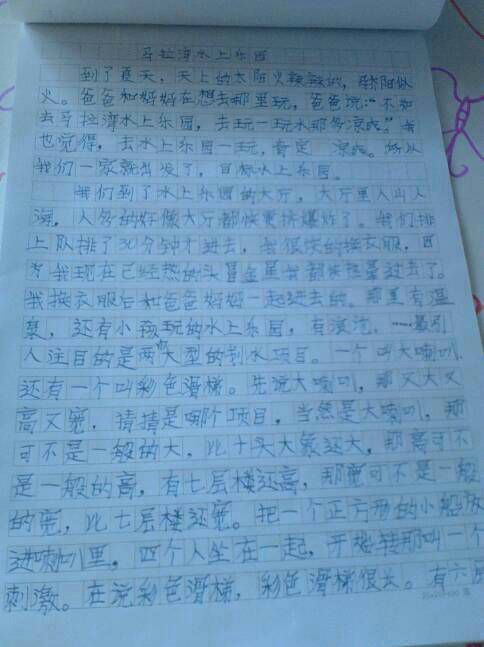 马拉湾水上乐园
到了夏天,天上的太阳火辣辣的,骄阳似
火。爸爸和妈妈在想去那里玩,爸爸说:“不如
去马拉湾水上乐园,去玩一玩水那多凉快。”我
也觉得,去水上乐园一玩,肯定 凉快。所以
我们一家就出发了,目标水上乐园。
我们到了水上乐园的大厅,大厅里人山人
海,人多的好像大厅都快要挤爆炸了。我们排
上队排了30分钟才进去,我很快的换衣服,因
为我现在已经热的头冒金星我都快热晕过去了。
我换衣服后和爸爸妈妈一起进去的。那里有温
泉,还有小孩玩的水上乐园,有漂流,……最引
人注目的是两个大型的刺水项目。一个叫大喇叭,
还有一个叫彩色滑梯。先说大喇叭,那又大又
高又宽,请猜是哪个项目,当然是大喇叭,那
可不是一般的大,比十头大象还大,那高可不
是一般的高,有七层楼还高,那宽可不是一般
的宽,比七层楼还宽。把一个正方形的小船放
进喇叭里,四个人坐在一起,开始转那叫一个
刺激。在说彩色滑梯,彩色滑梯很长。有六